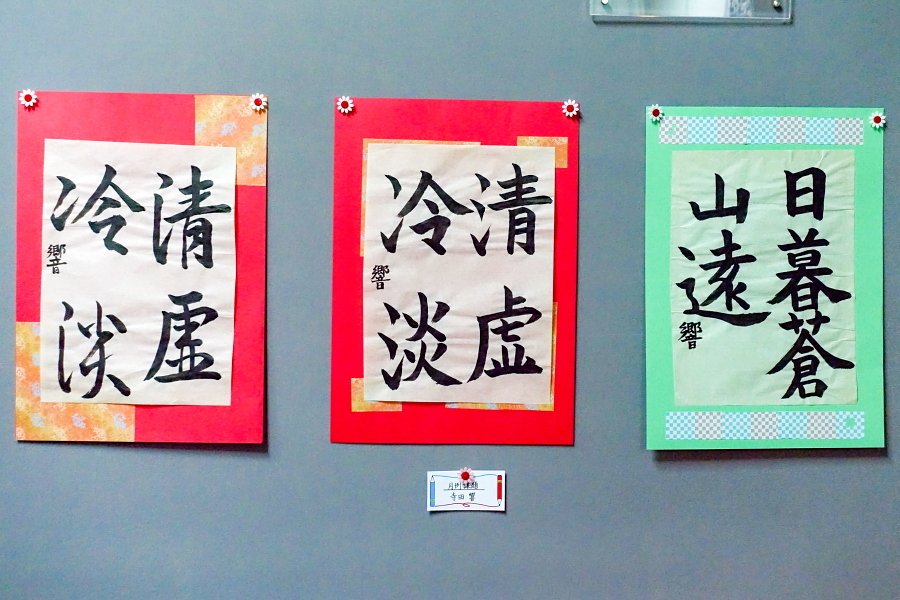 清虚
冷淡
響
清虚
冷淡
響
日暮蒼
山遠
響
月例課題
寺田 響